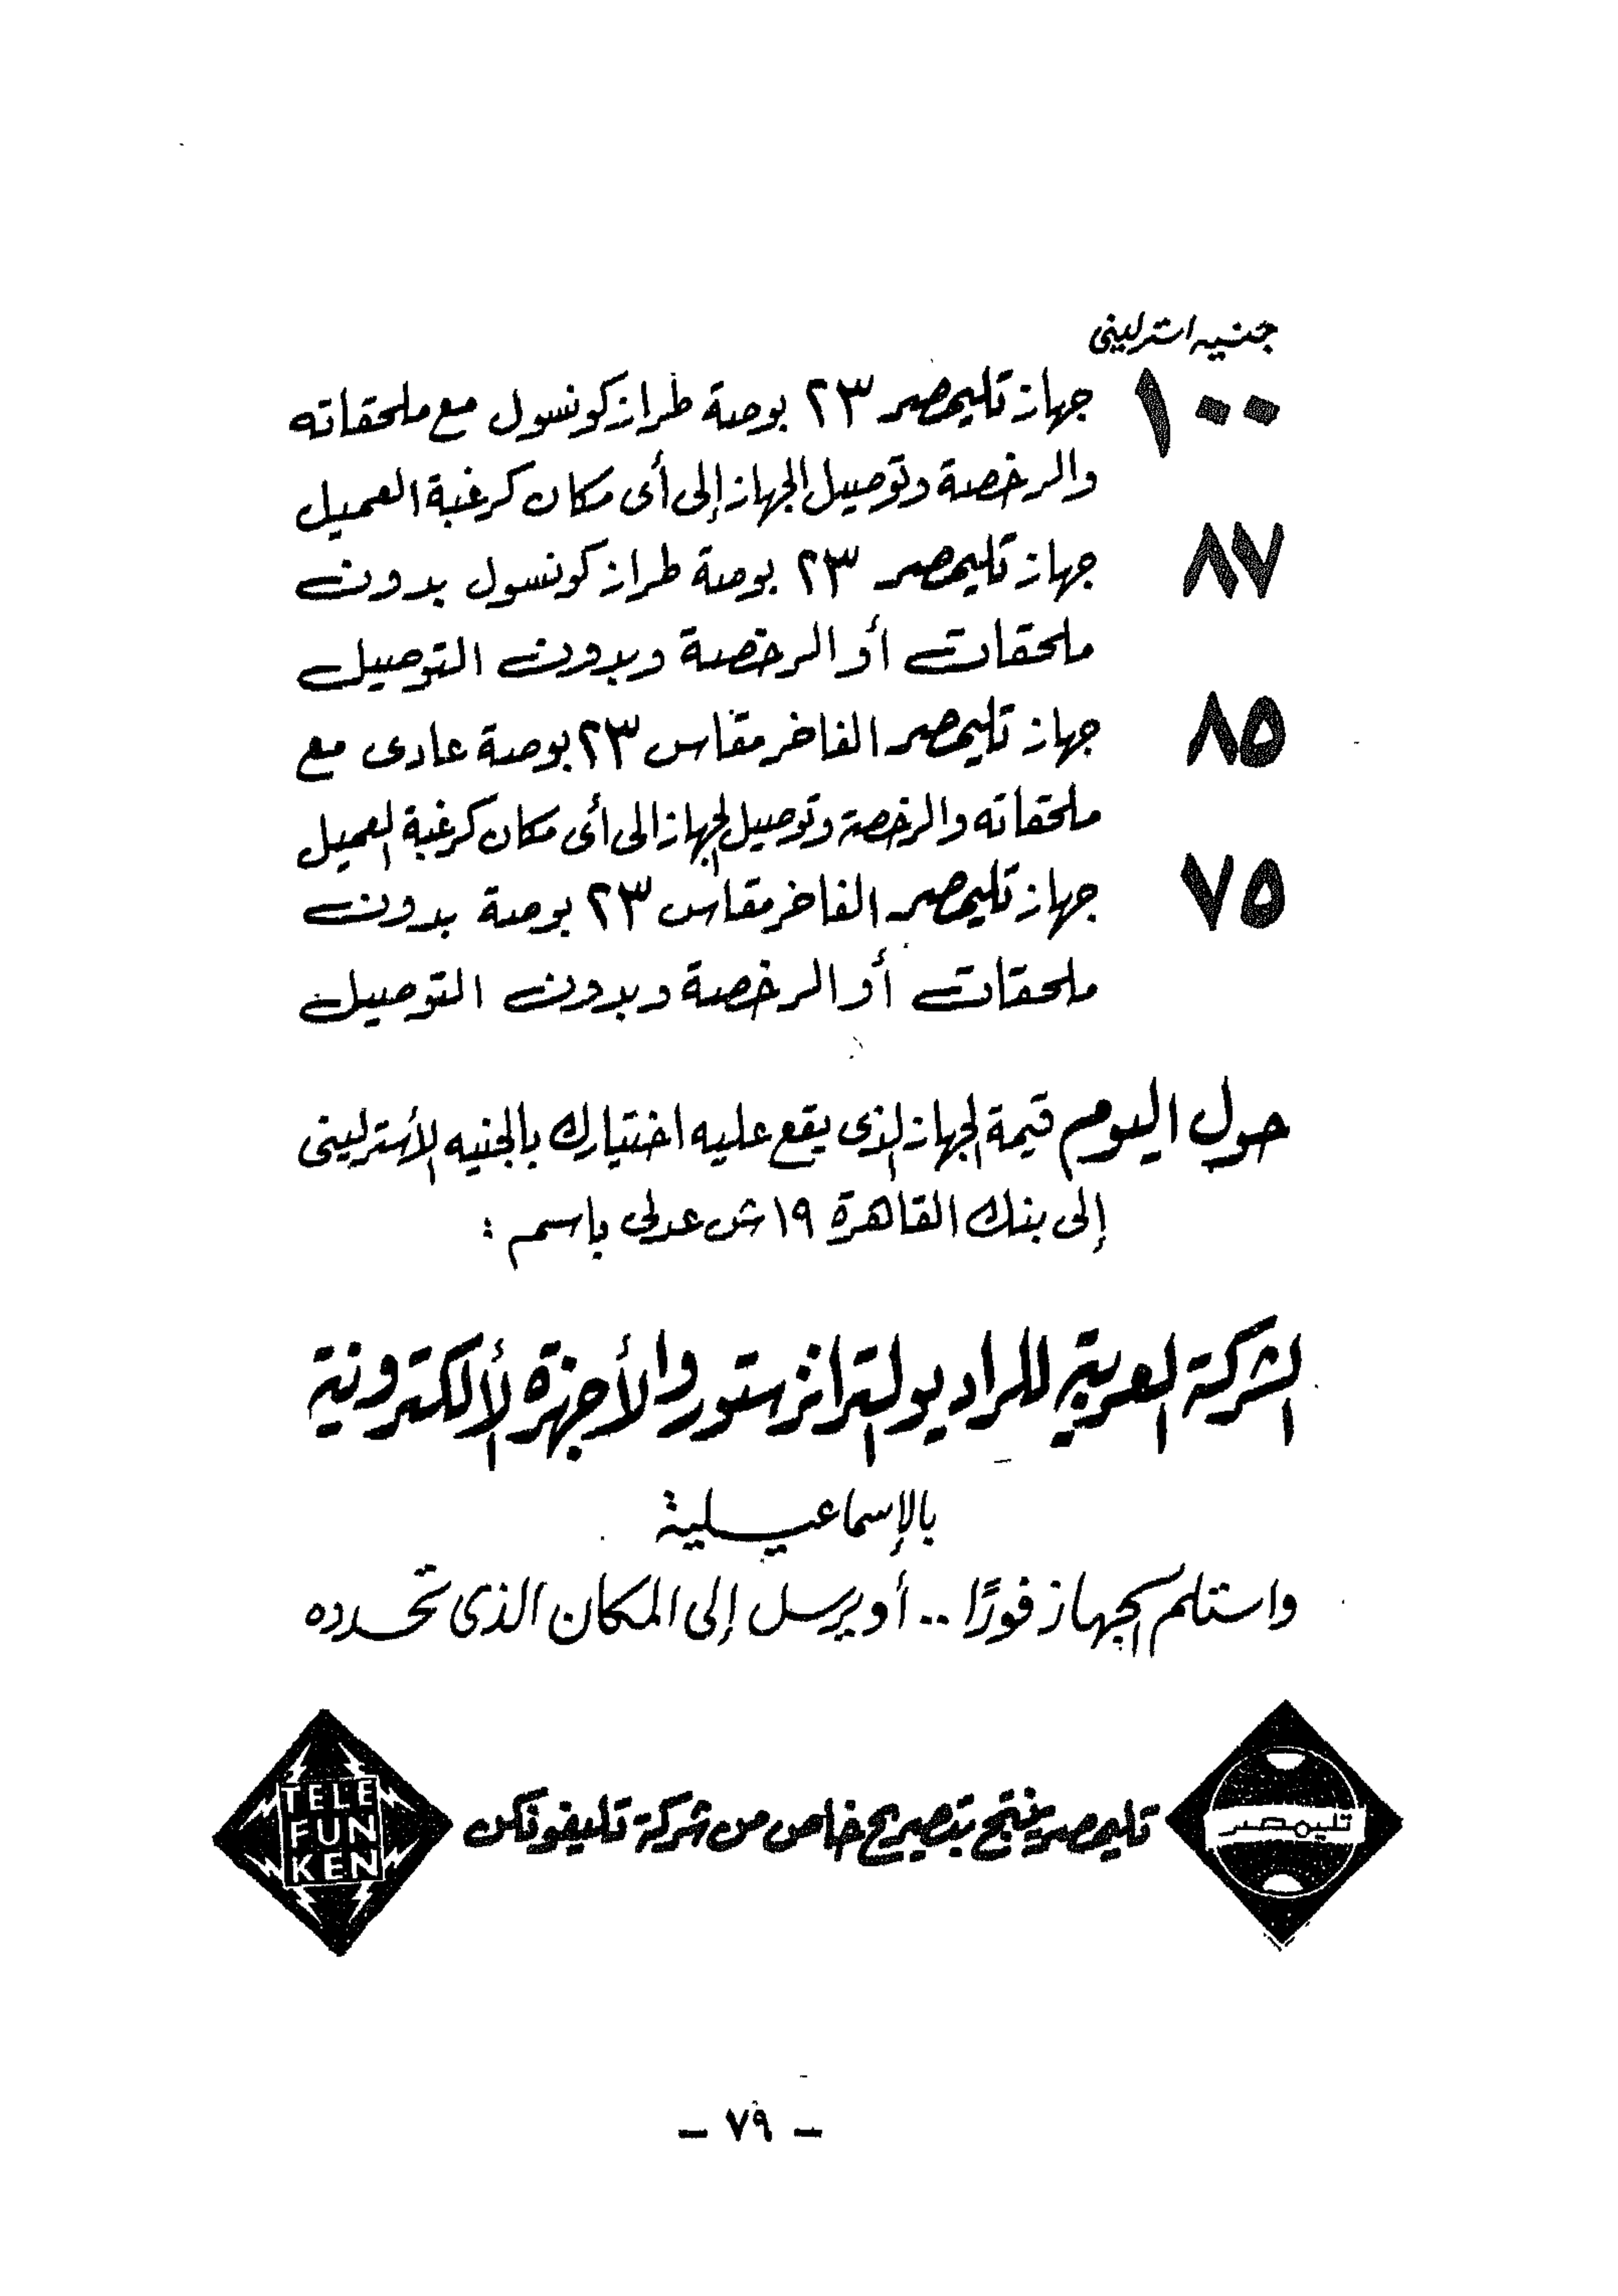 جنيه استرليني
١٠٠ جهاز تليمصر ٢٣ بوصة طراز كونسول مع ملحقاته
والرخصة وتوصيل الجهاز إلى أى مكان كرغبة العميل
٨٧ جهاز تليمصر ٢٣ بوصة طراز كونسول بدون
ملحقات أو الرخصة وبدون التوصيل
٨٥ جهاز تليمصر الفاخر مقاس ٢٣ بوصة عادى مع
ملحقاته والرخصة وتوصيل الجهاز الى أى مكان كرغبة العميل
٧٥ جهاز تليمصر الفاخر مقاس ٢٣ بوصة بدون
ملحقات أو الرخصة وبدون التوصيل
حول اليوم قيمة الجهاز الذى يقع عليه اختيارك بالجنيه الأسترليني
إلى بنك القاهرة ١٩ ش عدلى باسم :
الشركة العربية للراديو لترانزستور والأجهزة الألكترونية
بالإسماعيلية
واستلم الجهاز فورًا .. أو يرسل إلى المكان الذى تحدده
تليمصر
تليمصر ينتج بتصريح خاص من شركة تليفونكن
TELE
FUN
KEN
– ٧٩ –